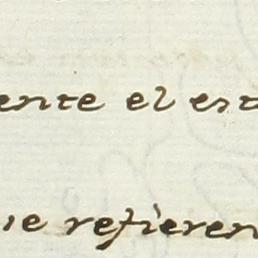 ente el est
ue refieren